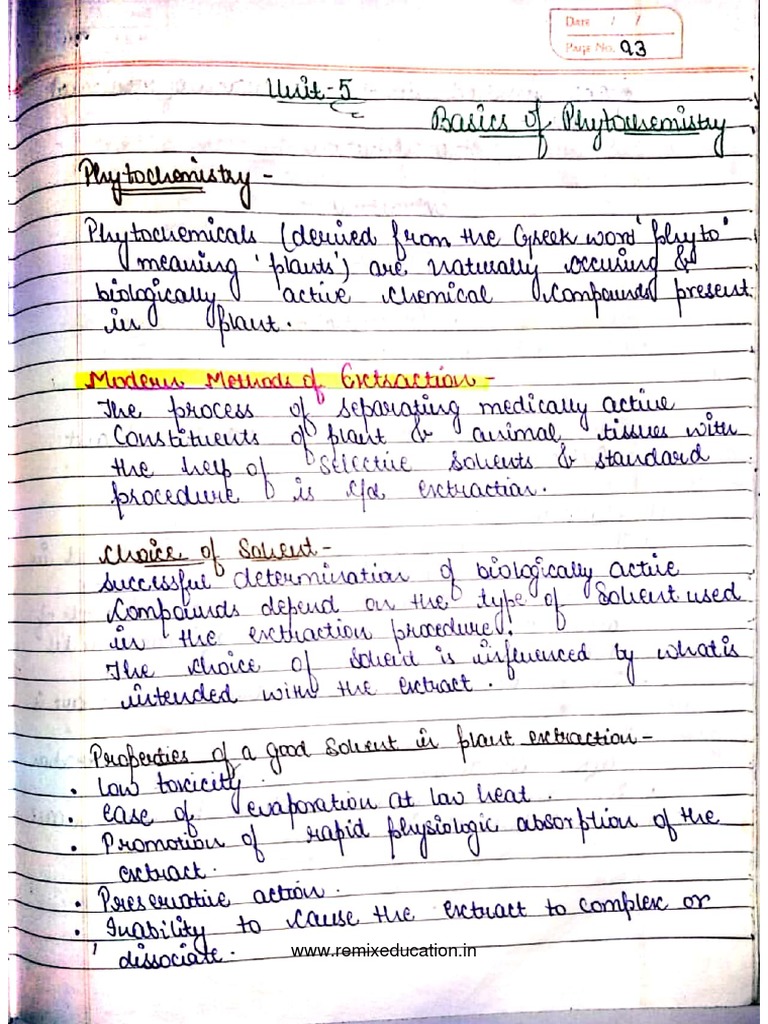 Date / /
Page No. 93
Unit-5
Basics of Phytochemistry
Phytochemistry -
Phytochemicals (derived from the Greek word 'phyto'
meaning 'plants') are naturally occusing &
biologically active chemical compounds present
in plant.
Modern Methods of Extraction -
The process of separating medically active
Constituents of plant & animal tissues with
the help of selective solvents & standard
procedure is c/d extraction.
Choice of Solvent -
Successful determination of biologically active
Compounds depend on the type of Solvent used
in the extraction procedure.
The choice of solvent is influenced by what is
intended with the extract.
Properties of a good Solvent in plant extraction -
• Low toxicity.
• ease of evaporation at low heat.
• Promotion of rapid physiologic absorption of the
extract.
• Preservative action.
• Inability to cause the extract to complex or
dissociate.
www.remixeducation.in